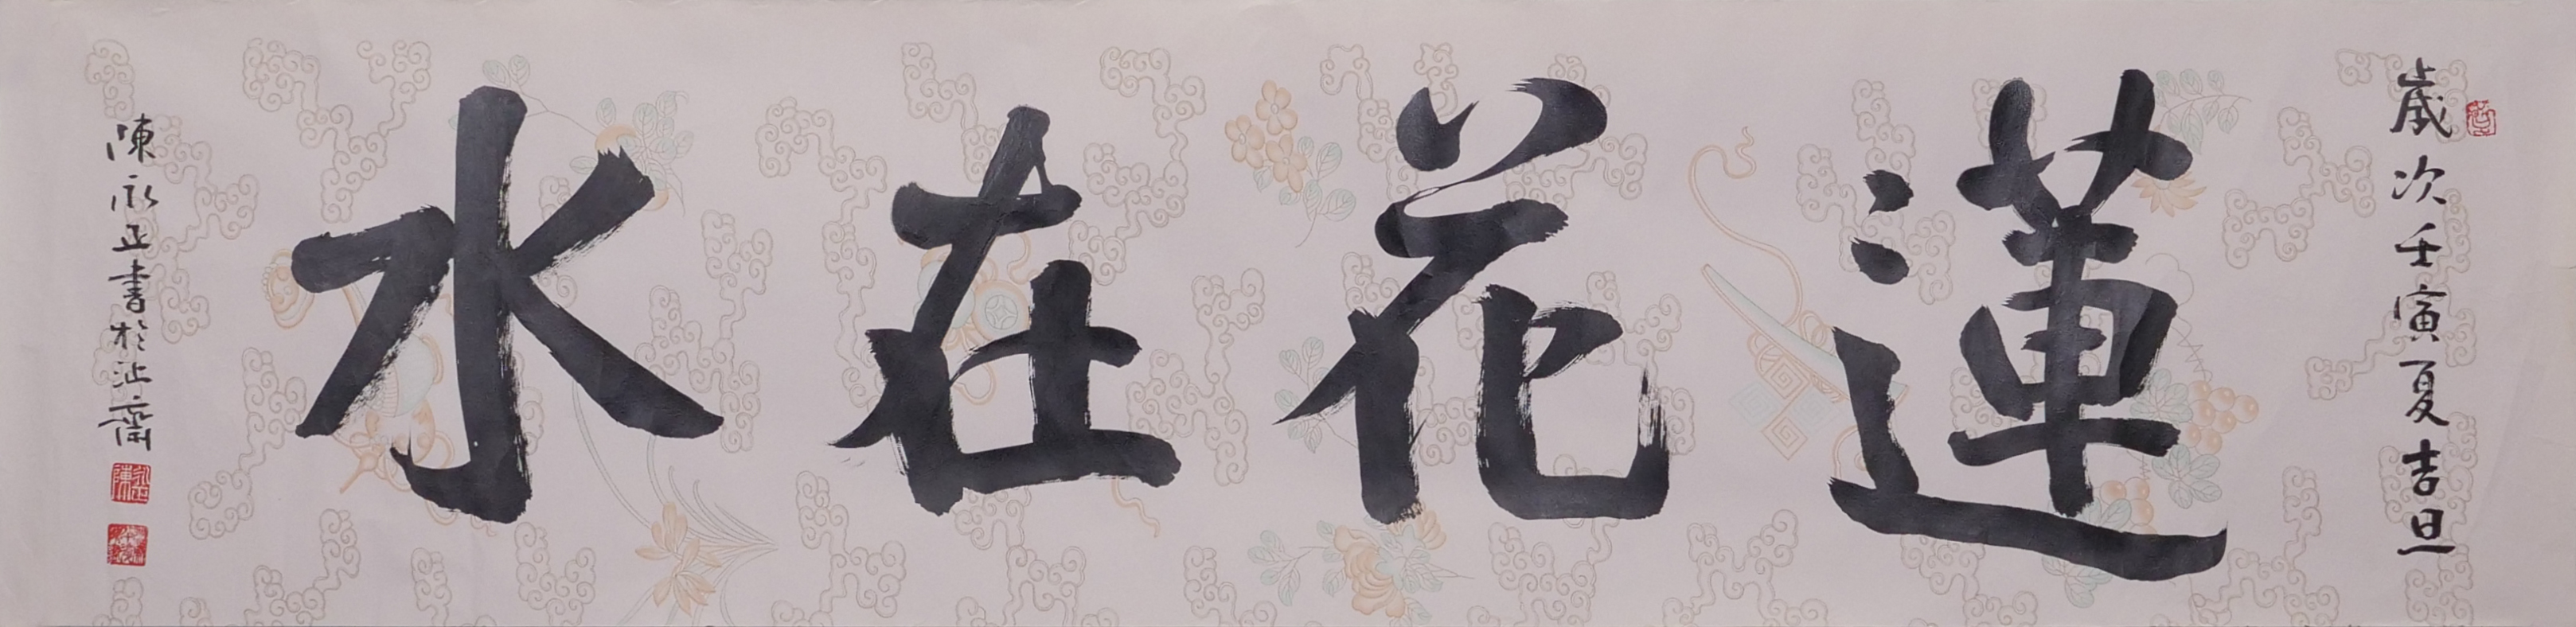 歲次壬寅夏吉旦
蓮花在水
陳永正書於沚齋